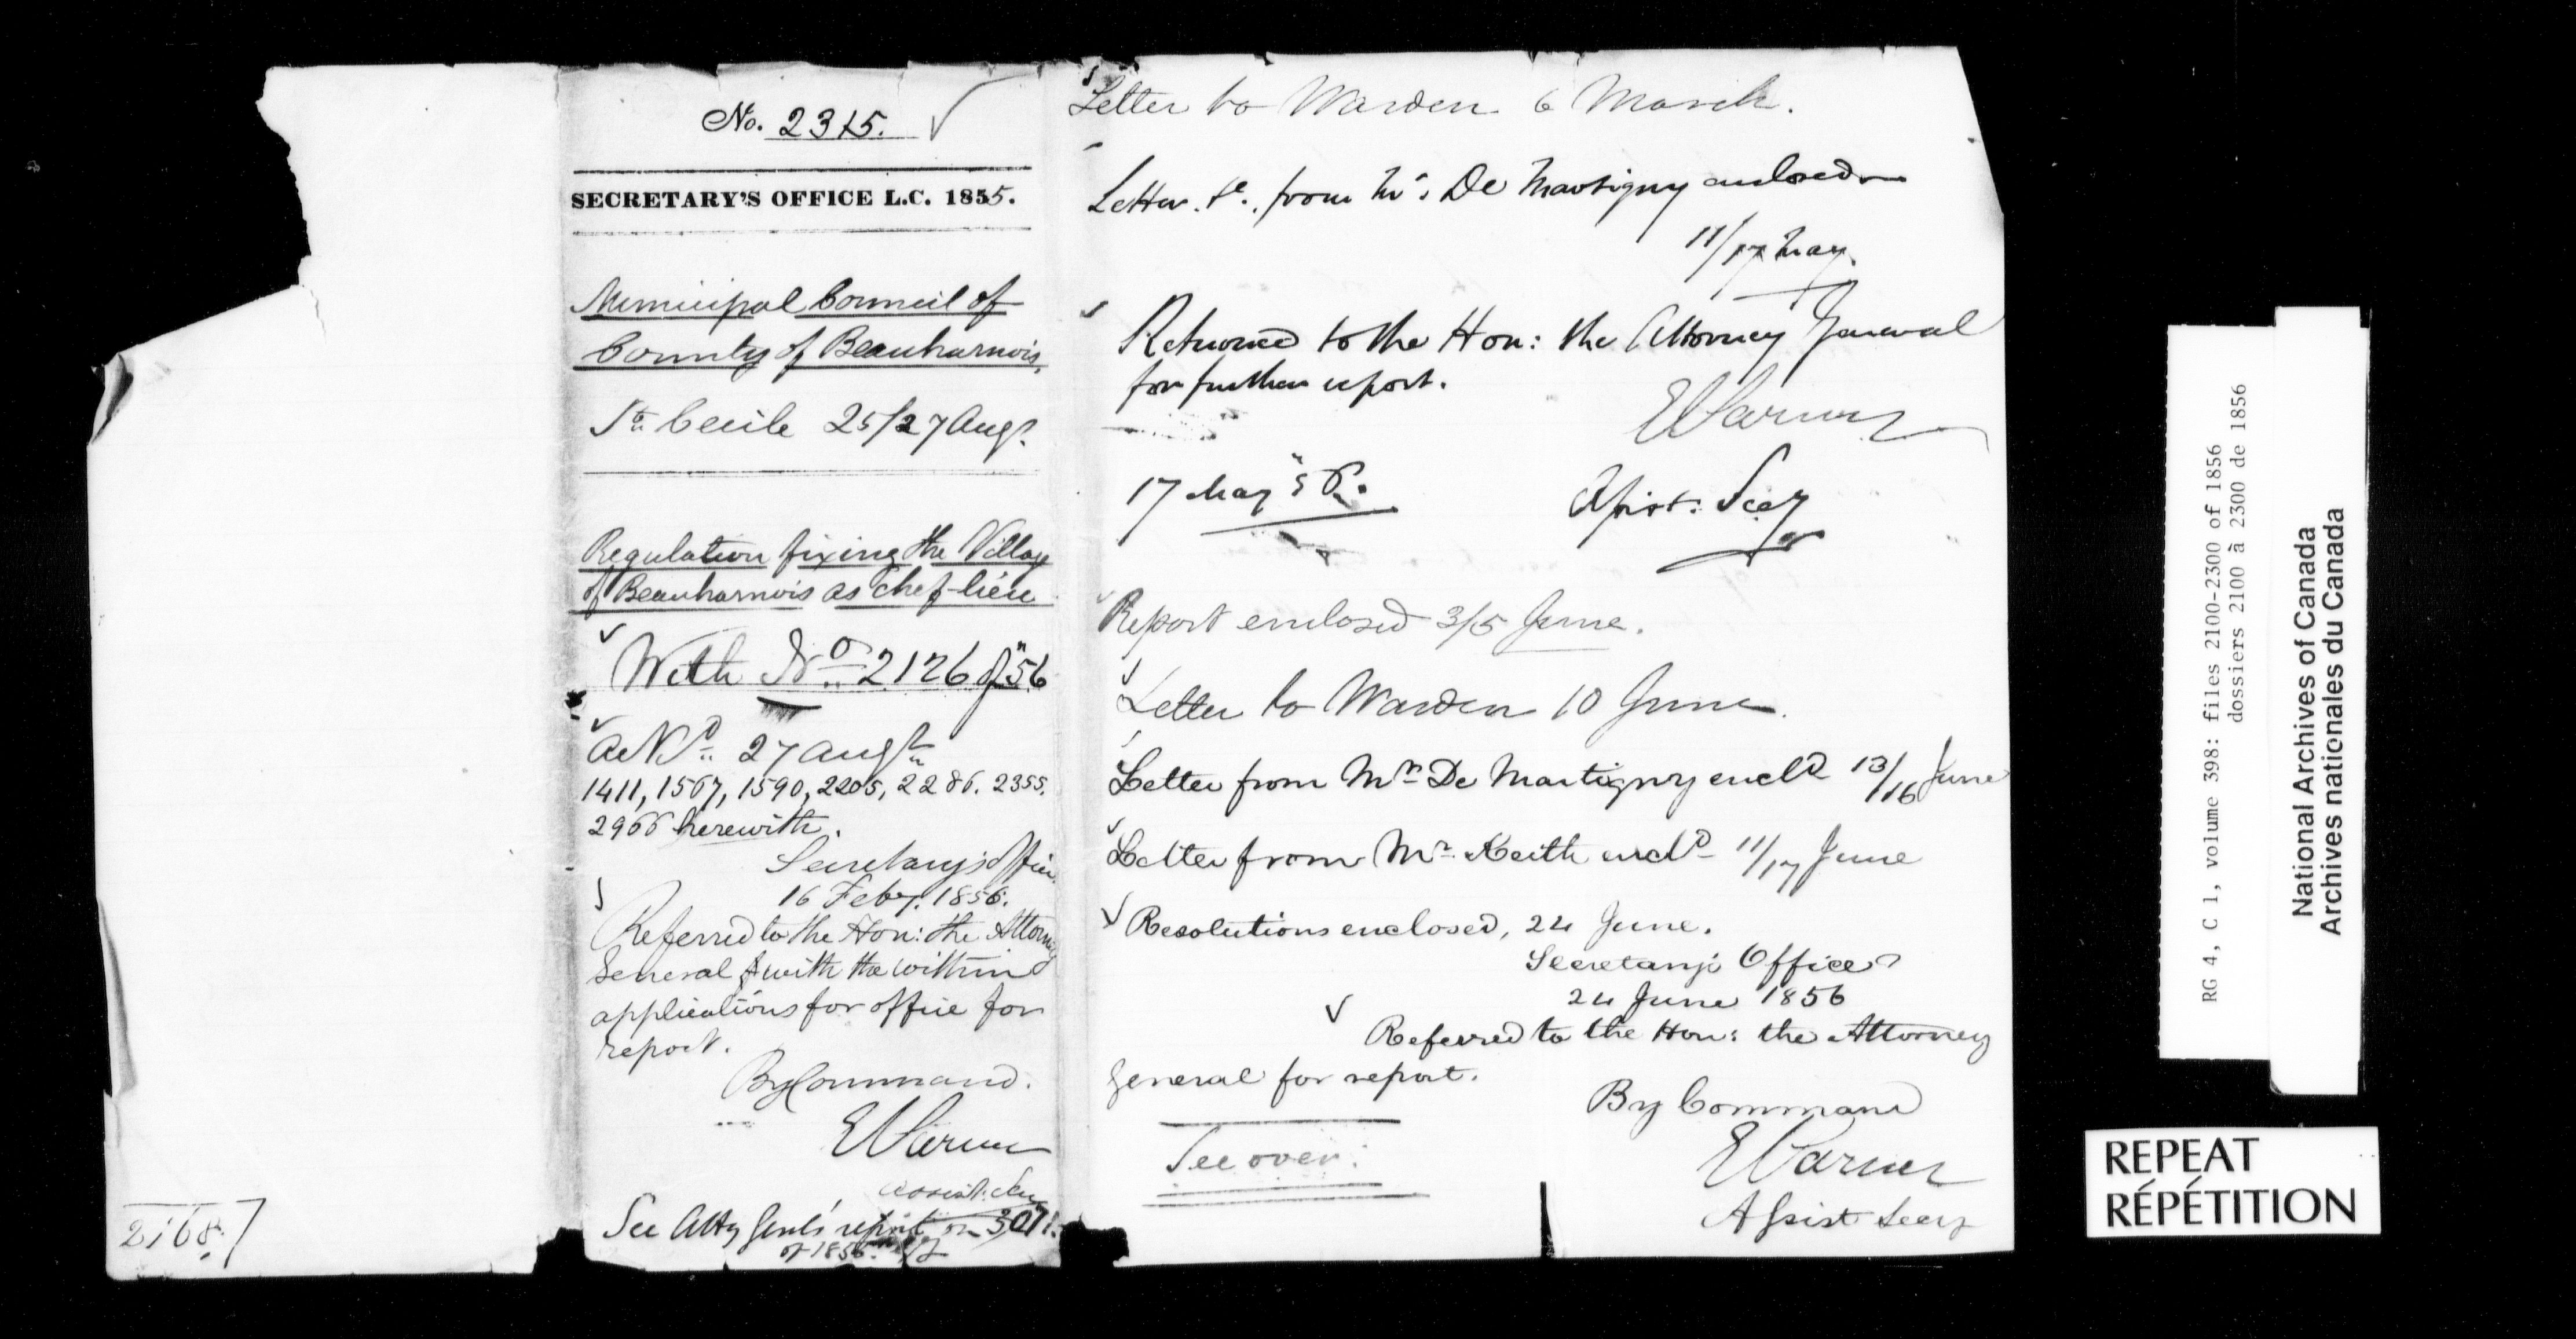 No. 2315.
SECRETARY'S OFFICE L.C. 1855.
Municipal Council of
County of Beauharnois,
Ste Cecile 25/27 Augt.
Regulation fixing the Village
of Beauharnois as Chef-lieu
With No. 2126 of "56
Ackd. 27 Augt.
1411, 1567, 1590, 2205, 2286. 2355.
2966 herewith.
Secretary's Office
16 Feby. 1856.
Referred to the Hon: the Attorney
General & with the within
applications for office for
report.
By Command.
E Parent
Assist. Secy
See Atty Genl's report on 3071.
of 1856.
2168.
Letter to Warden 6 March.
Letter &c. from Mr. De Martigny enclosed
11/17 May.
Returned to the Hon: the Attorney General
for further report.
E Parent
17 May "56.
Assist: Secy
Report enclosed 3/5 June.
Letter to Warden 10 June.
Letter from Mr. De Martigny encld 13/16 June
Letter from Mr. Keith encld 11/17 June
Resolutions enclosed, 24 June.
Secretary's Office
24 June 1856
Referred to the Hon: the Attorney
General for report.
By Command
E Parent
Assist Secy
See over.
RG 4, C 1, volume 398: files 2100-2300 of 1856
dossiers 2100 à 2300 de 1856
National Archives of Canada
Archives nationales du Canada
REPEAT
RÉPÉTITION